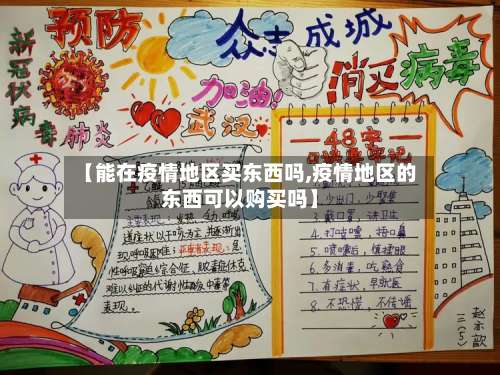 预防
新冠状病毒肺炎
众志成城
消灭病毒
加油!
武汉
48字
【能在疫情地区买东西吗,疫情地区的
东西可以购买吗】
主要表现:发热、乏力,呼吸
道症状以干咳为主,并逐渐出
现呼吸困难;严重者表现:急
性呼吸窘迫综合征、脓毒症休克、
难以纠正的代谢性酸
表现。
2. 少出门,少聚集
3. 戴口罩,讲卫生
4. 打喷嚏,捂口鼻
5. 喷嚏后,慎揉眼
6. 多消毒,吃熟食
7. 有症状,早就医
8. 不恐慌,不传谣
三(5)